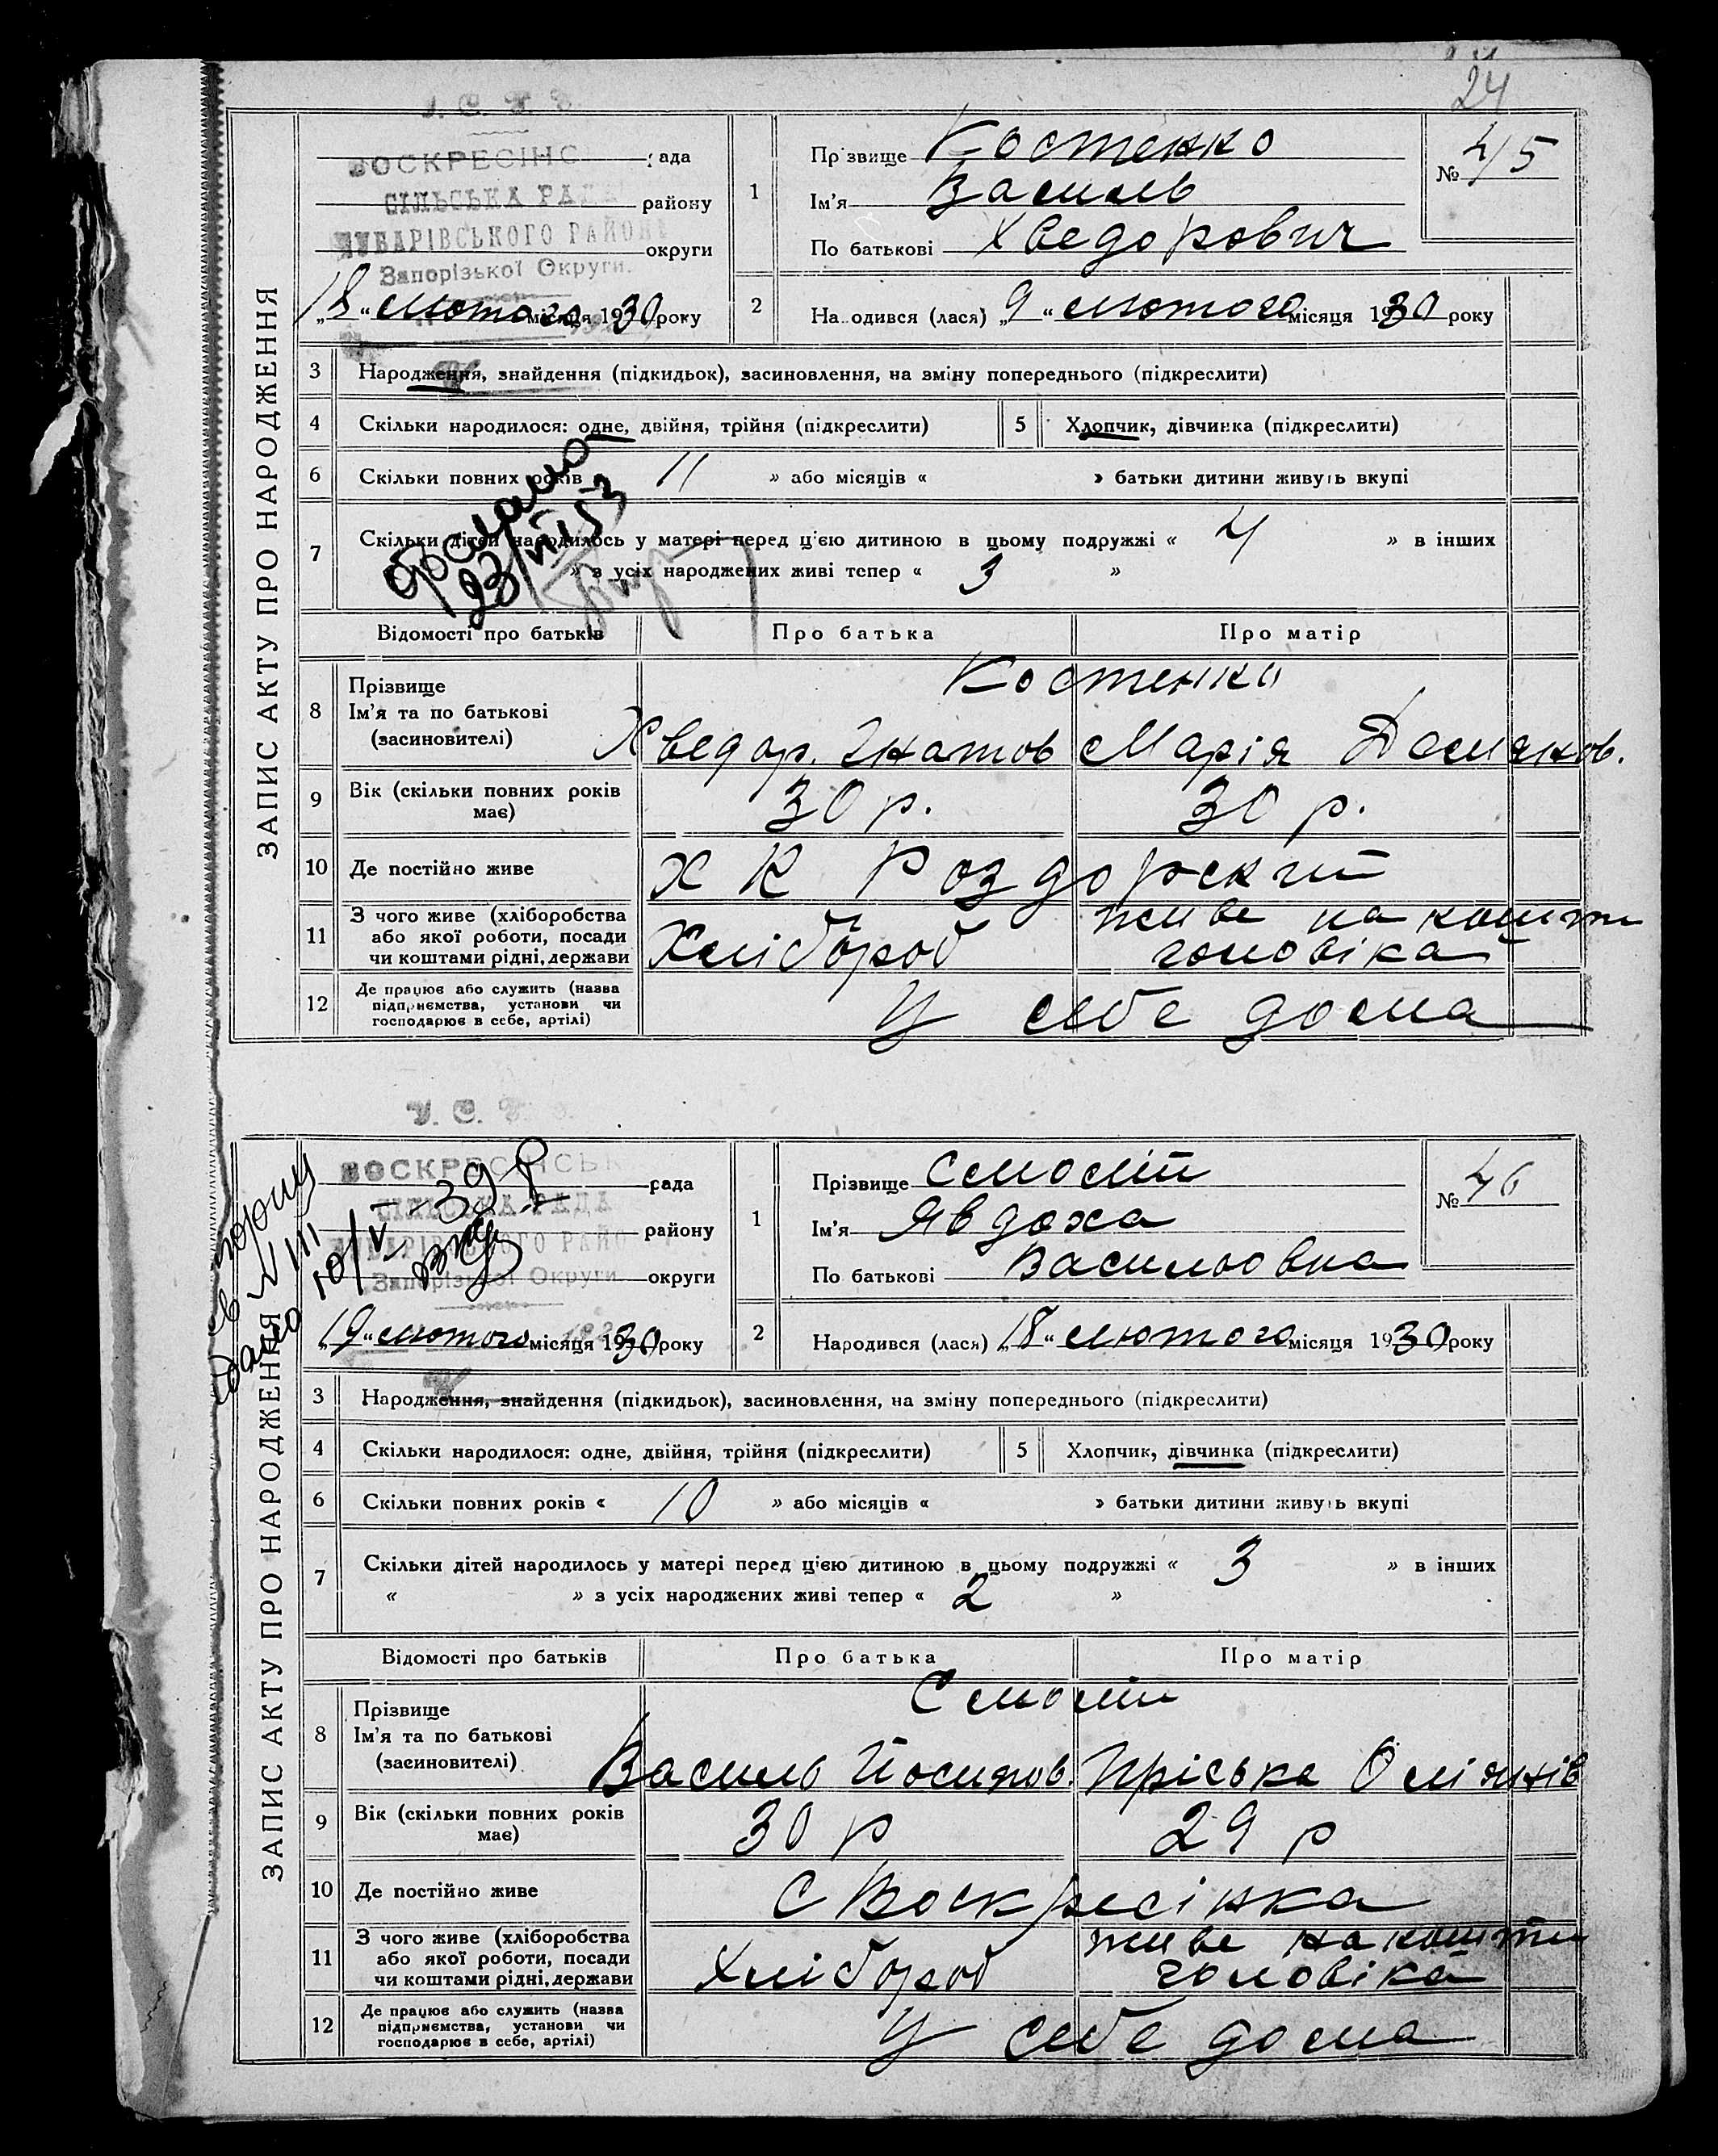 24
ЗАПИС АКТУ ПРО НАРОДЖЕННЯ
У. С.
ВОСКРЕСІНС рада
СІЛЬСЬКА РАДА району
ЧУБАРІВСЬКОГО РАЙОНУ округи
Запорізької Округи.
„18“ лютого місяця 1930 року
1 Прізвище Костенко
Ім'я Василь
По батькові Хведорович
№ 45
2 На..одився (лася) „9“ лютого місяця 1930 року
3 Народження, знайдення (підкидьок), засиновлення, на зміну попереднього (підкреслити)
4 Скільки народилося: одне, двійня, трійня (підкреслити) 5 Хлопчик, дівчинка (підкреслити)
6 Скільки повних років 11 » або місяців « » батьки дитини живуть вкупі
7 Скільки дітей народилось у матері перед цією дитиною в цьому подружжі « 4 » в інших
» з усіх народжених живі тепер « 3 »
23/VII 53
Відомості про батьків Про батька Про матір
8 Прізвище Костенко
Ім'я та по батькові
(засиновителі) Хведор. Гнатов Марія Демянов.
9 Вік (скільки повних років має) 30 р. 30 р.
10 Де постійно живе Х К Роздорский
11 З чого живе (хліборобства або якої роботи, посади чи коштами рідні, держави Хлібороб живе на кошти чоловіка
12 Де працює або служить (назва підприємства, установи чи господарює в себе, артілі) У себе дома
ЗАПИС АКТУ ПРО НАРОДЖЕННЯ
У. С.
ВОСКРЕСІНСЬК рада
СІЛЬСЬКА РАДА району
ЧУБАРІВСЬКОГО РАЙО округи
Запорізької Округи
10/V-39 р
„19“ лютого місяця 1930 року
1 Прізвище Смолій
Ім'я Явдоха
По батькові Васильовна
№ 46
2 Народився (лася) „18“ лютого місяця 1930 року
3 Народження, знайдення (підкидьок), засиновлення, на зміну попереднього (підкреслити)
4 Скільки народилося: одне, двійня, трійня (підкреслити) 5 Хлопчик, дівчинка (підкреслити)
6 Скільки повних років « 10 » або місяців « » батьки дитини живуть вкупі
7 Скільки дітей народилось у матері перед цією дитиною в цьому подружжі « 3 » в інших
« » з усіх народжених живі тепер « 2 »
Відомості про батьків Про батька Про матір
8 Прізвище Смолій
Ім'я та по батькові
(засиновителі) Василь Йосипов. Пріська Оліянів
9 Вік (скільки повних років має) 30 р 29 р
10 Де постійно живе С Воскресінка
11 З чого живе (хліборобства або якої роботи, посади чи коштами рідні, держави Хлібороб живе на кошти чоловіка
12 Де працює або служить (назва підприємства, установи чи господарює в себе, артілі) У себе дома